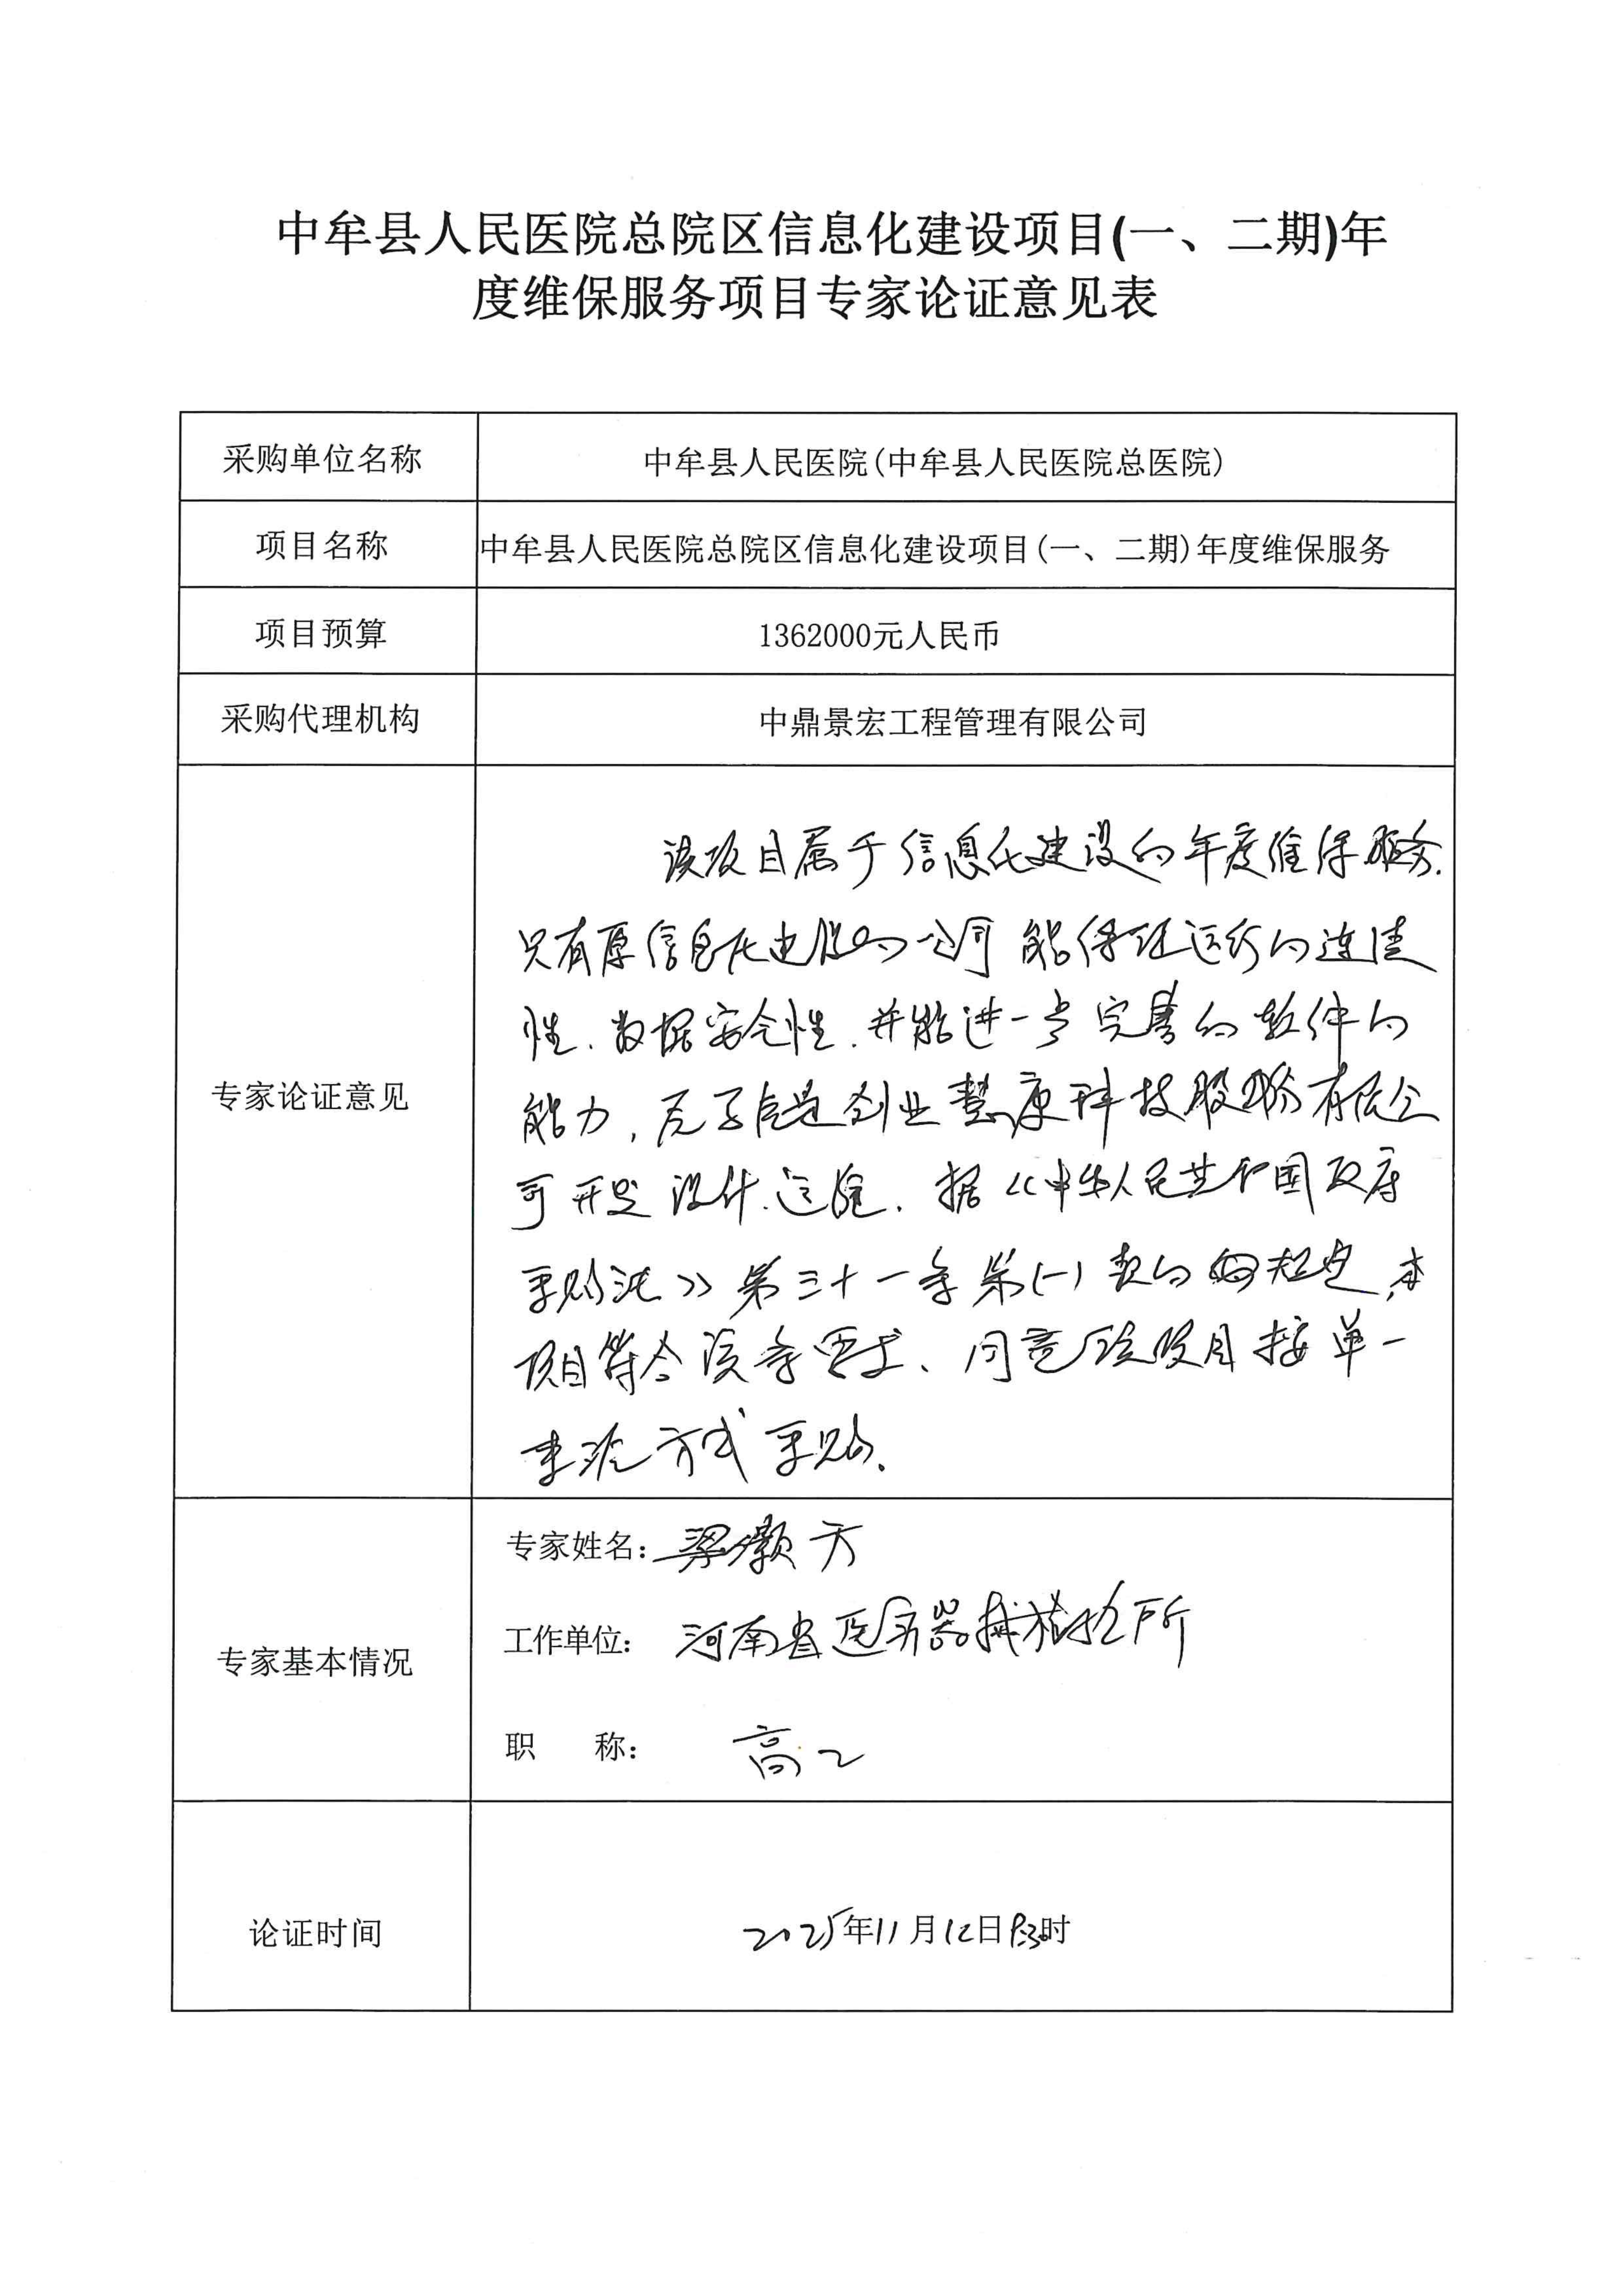 中牟县人民医院总院区信息化建设项目(一、二期)年
度维保服务项目专家论证意见表
采购单位名称
中牟县人民医院(中牟县人民医院总医院)
项目名称
中牟县人民医院总院区信息化建设项目(一、二期)年度维保服务
项目预算
1362000元人民币
采购代理机构
中鼎景宏工程管理有限公司
专家论证意见
该项目属于信息化建设的年度维保服务.
只有原信息化建设的公司能保证运行的连续
性、数据安全性.并能进一步完善的软件的
能力,创业慧康科技股份有限公
司开发设计、运维.据《中华人民共和国政府
采购法》第三十一条第(一)款的规定,本
项目符合该条要求、同意该项目按单一
来源方式采购.
专家基本情况
专家姓名:梁灏方
工作单位:河南省医疗器械检验所
职 称: 高工
论证时间
2025年11月12日 时